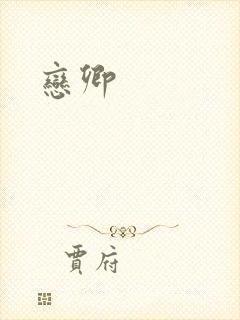 戀卿
賈府